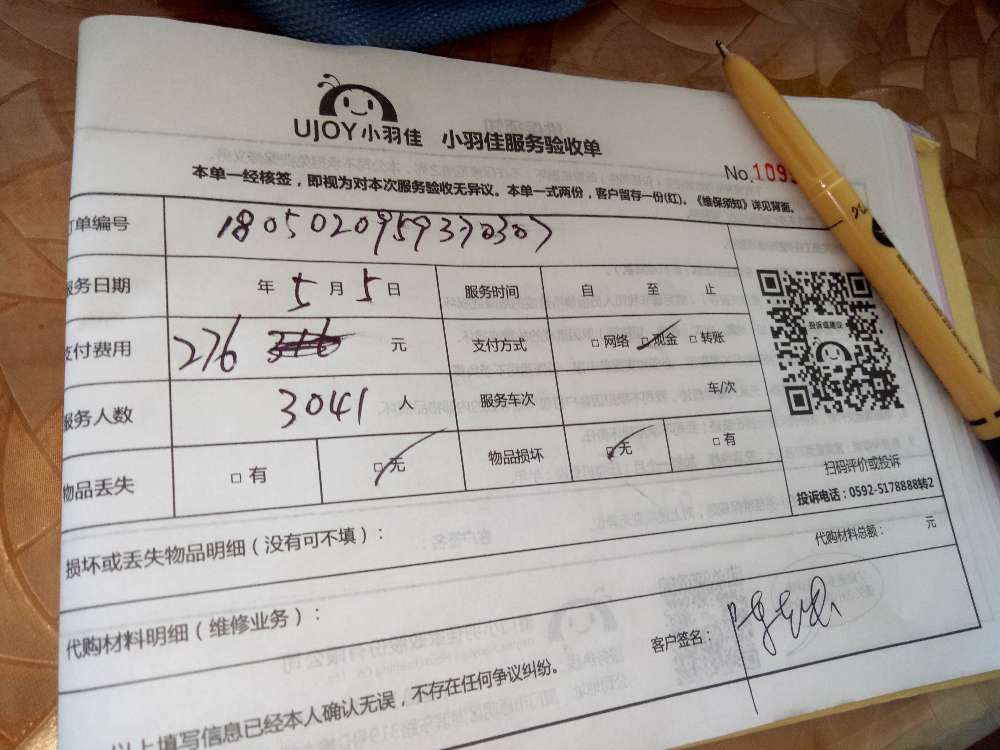 UJOY小羽佳 小羽佳服务验收单
No.109
本单一经核签，即视为对本次服务验收无异议。本单一式两份，客户留存一份(红)。《维保须知》详见背面。
订单编号 1805020959370307
服务日期 年 5 月 5 日 服务时间 自 至 止
支付费用 276 元 支付方式 □ 网络 ☑ 现金 □ 转账
服务人数 3041 人 服务车次 车/次
物品丢失 □ 有 ☑ 无 物品损坏 ☑ 无 □ 有
投诉或建议
扫码评价或投诉
投诉电话：0592-5178888转2
损坏或丢失物品明细（没有可不填）：
代购材料总额： 元
代购材料明细（维修业务）：
客户签名：
以上填写信息已经本人确认无误，不存在任何争议纠纷。